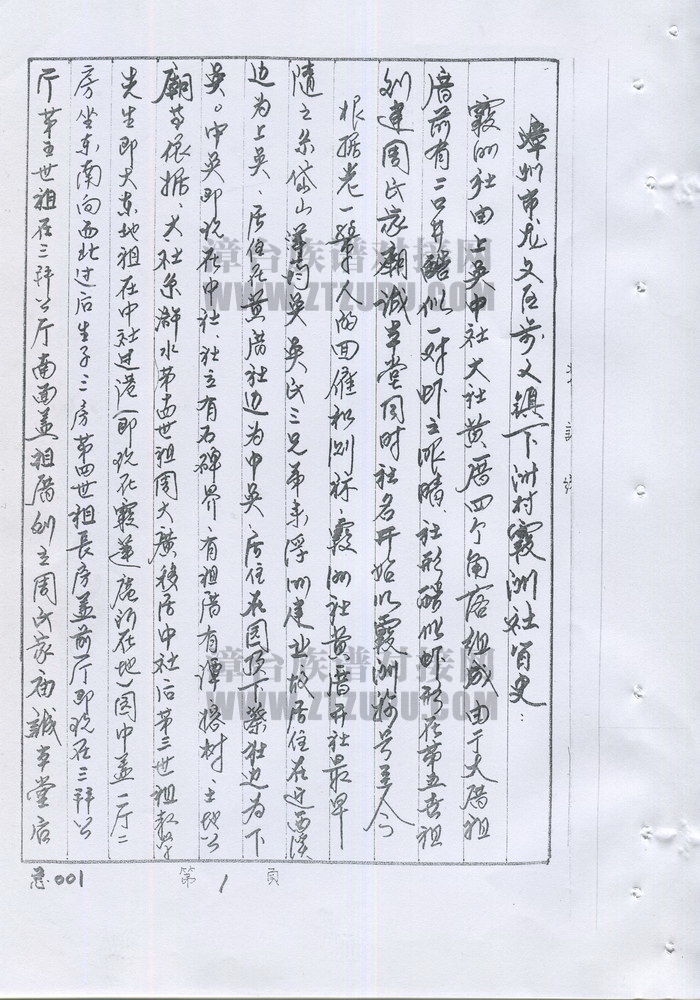 漳州市龙文区步文镇下洲村霞洲社百史：
霞洲社由上吴中社大社黄厝四个角落组成由于大厝祖
厝前有二口井酷似一对虾之眼睛、社形酷似虾形在第五世祖
创建周氏家廟诚孝堂同时社名开始以霞洲称号至今
根据老一辈人的回催和测称、霞洲社黄厝开社最早
随之系岱山 吴吴氏三兄弟来浮洲建业故居住在近西溪
边为上吴、居住在黄厝社边为中吴、居住在园顶下 社边为下
吴。中吴即现在中社、社立有石碑界、有祖厝有潭榕树、土地公
廟等依据、大社系 水第 世祖周大廣移居中社后第三世祖
先生即大东地祖在中社过港（即现在霞莲庵所在地）园中盖一厅二
房坐东南向西北过后生子三房第四世祖長房盖前厅即现在三 公
厅第五世祖在三 公厅南面盖祖厝创立周氏家庙誠孝堂后
总001
第1页
漳台族谱对接网
WWW.ZTZUPU.COM
漳台族谱对接网
WWW.ZTZUPU.COM